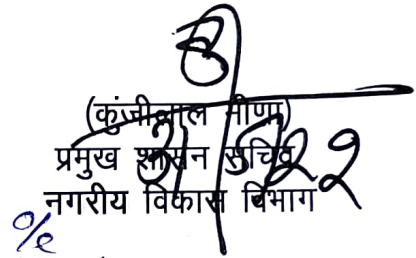 (कुंजीलाल मीणा)
प्रमुख शासन सचिव
नगरीय विकास विभाग